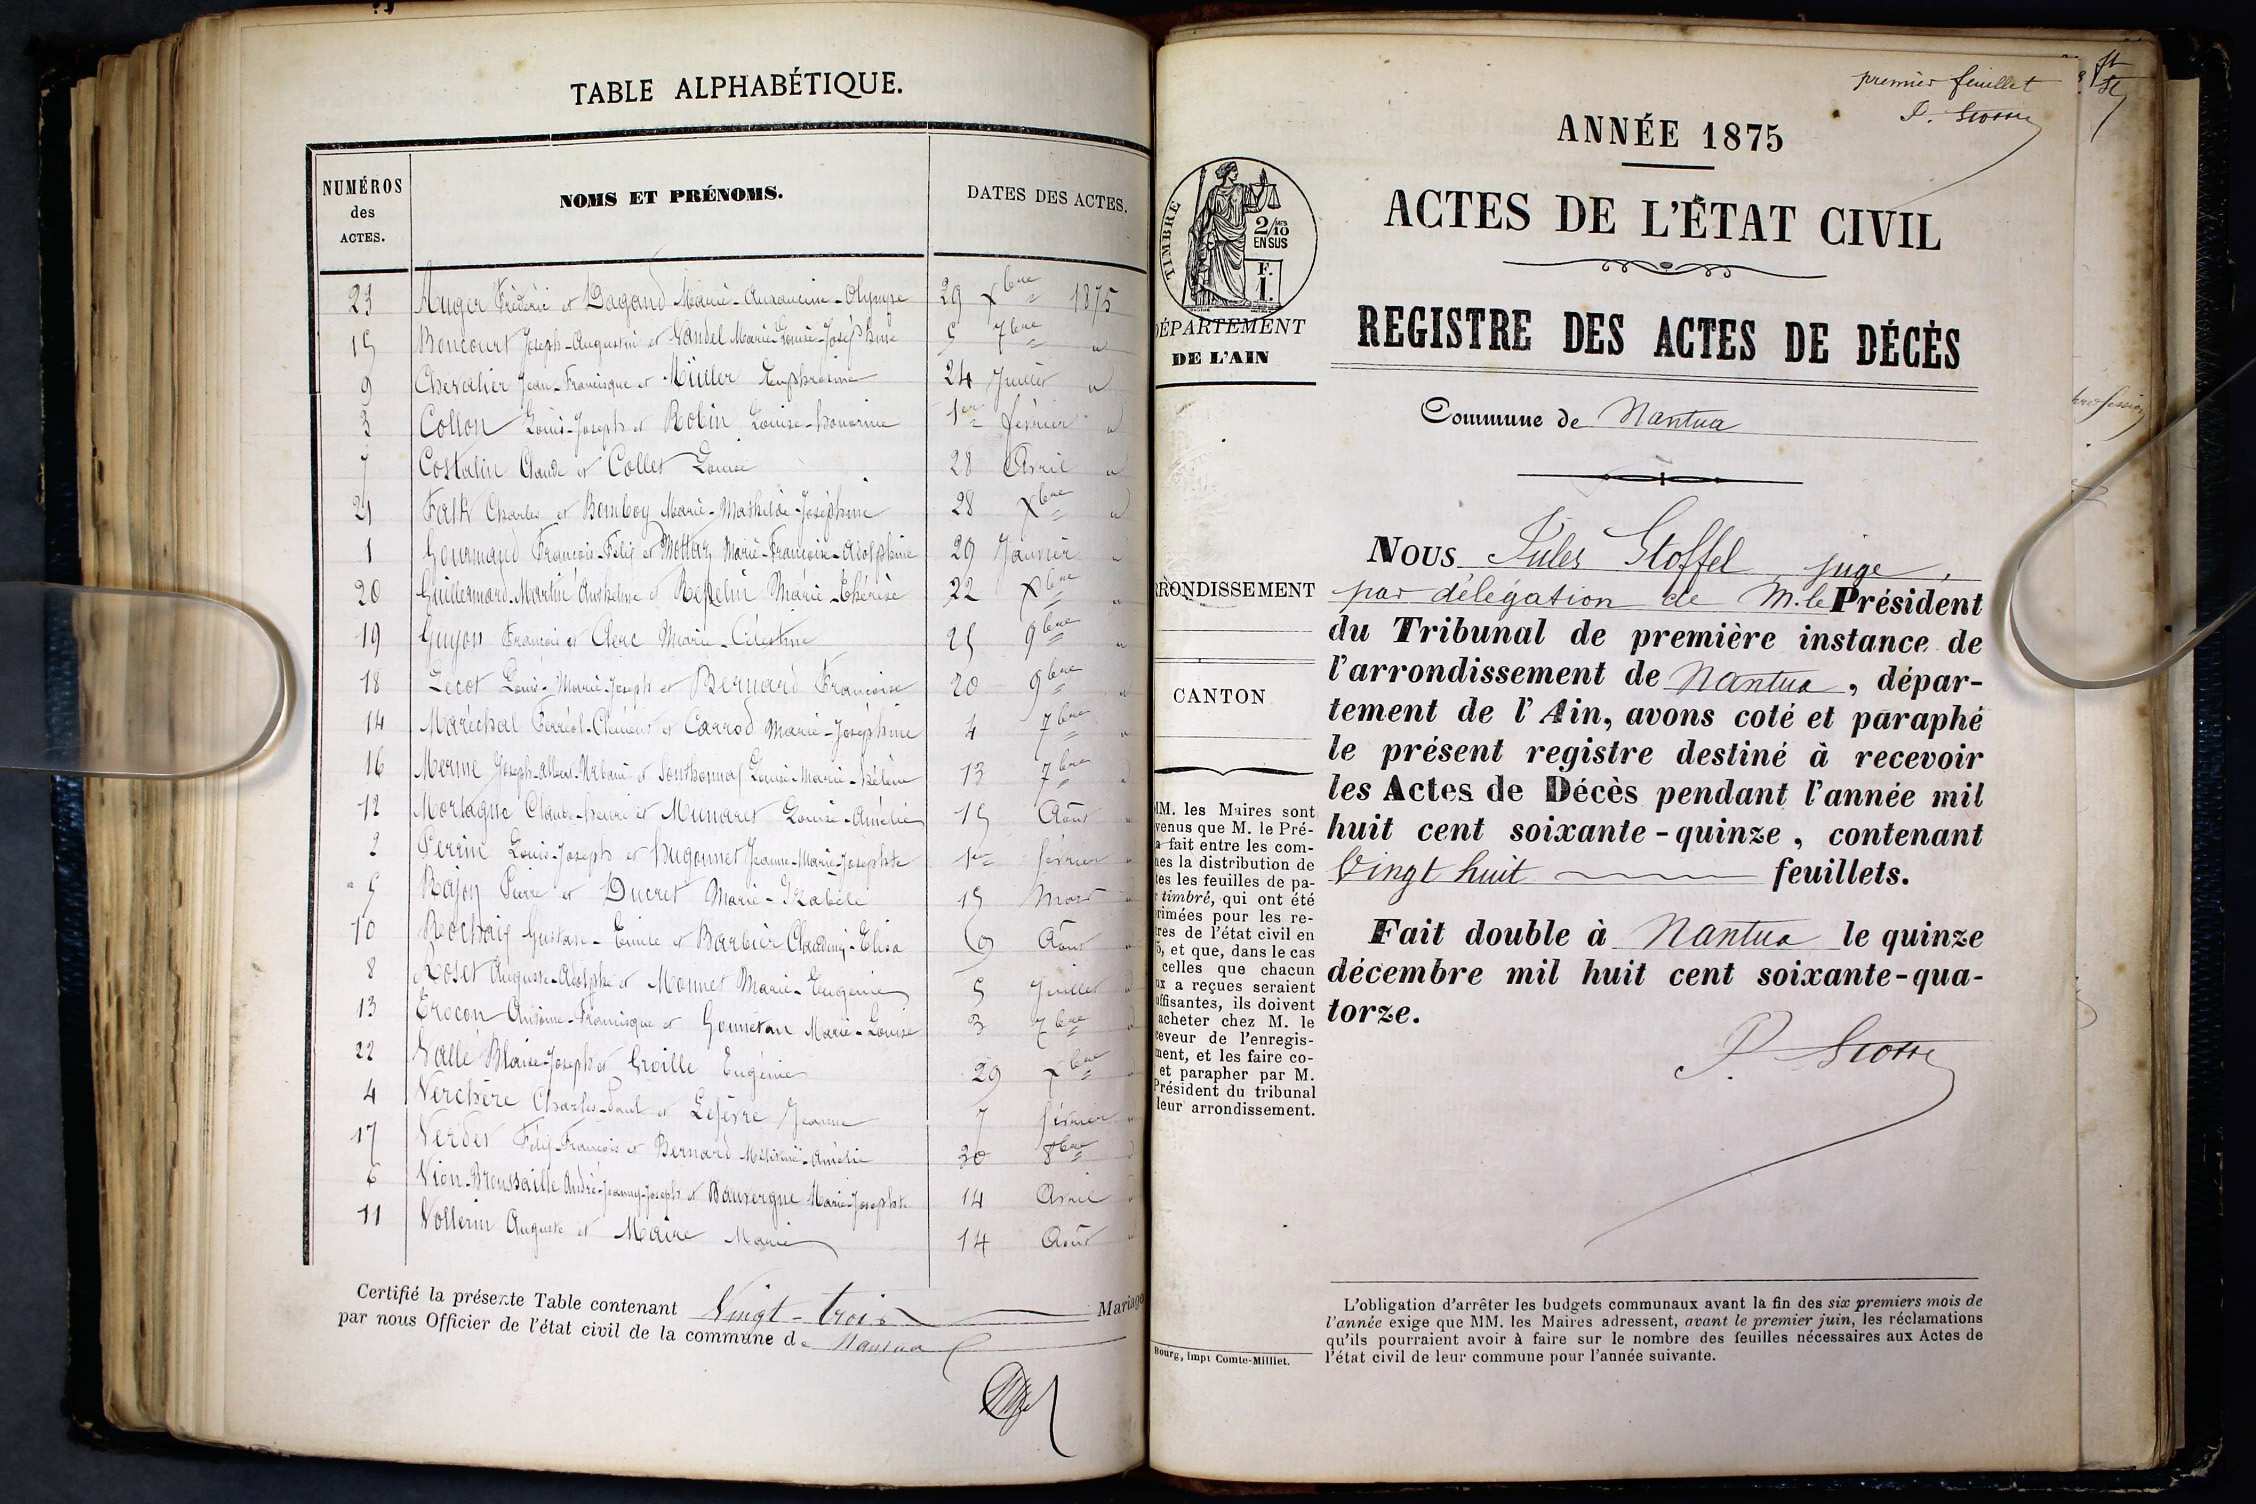 TABLE ALPHABÉTIQUE.
NUMÉROS
des
ACTES.
NOMS ET PRÉNOMS.
DATES DES ACTES.
23 Auger Frédéric et Dagand Marie- Olympe 29 Xbre 1875
15 Boncourt Joseph-Augustin et Vandel Marie-Louise-Joséphine 5 7bre "
9 Chevalier Jean-Francisque et Müller Euphrosine 24 Juillet "
3 Collon Louis-Joseph et Robin Louise-honorine 1er février "
7 Costatin Claude et Collet Louise 28 Avril "
21 Falk Charles et Bomboy Marie-Mathilde-Joséphine 28 Xbre "
1 Gourmand François-Félix et Mottaz Marie-Françoise-Adolphine 29 Janvier "
20 Guillermard-Martin Anthelme et Repelin Marie-Thérèse 22 Xbre "
19 Guyon François et Clerc Marie-Célestine 25 9bre "
18 Lecot Louis-Marie-Joseph et Bernard Françoise 20 9bre "
14 Maréchal Ferréol-Clément et Carrod Marie-Joséphine 4 7bre "
16 Merme Joseph-Albert-Urbain et Sonthonnax Louise-Marie-hélène 13 7bre "
12 Mortagne Claude-henri et Munaret Louise-Amélie 15 Août "
2 Perrin Louis-Joseph et hugonnet Jeanne-Marie-Josephte 1er février "
5 Rajon Pierre et Ducret Marie-Izabèle 15 Mars "
10 Rochaix Gustave-Emile et Barbier Claudine-Elisa 9 Août "
8 Roset Auguste-Adolphe et Monnet Marie-Eugénie 5 Juillet "
13 Trocon Antoine-Francisque et Gounetan Marie-Louise 3 7bre "
22 Vallé Blaise-Joseph et Groille Eugénie 29 Xbre "
4 Verchère Charles-Paul et Lefèvre Jeanne 7 février "
17 Verdet Félix-François et Bernard Amélie 30 8bre "
6 Vion-Broussaille André-Jeanny-Joseph et Bauvergne Marie-Josephte 14 Avril "
11 Vollerin Auguste et Maire Marie 14 Août "
Certifié la présente Table contenant Vingt-trois Mariage
par nous Officier de l'état civil de la commune de Nantua
premier feuillet
ANNÉE 1875
ACTES DE L'ÉTAT CIVIL
REGISTRE DES ACTES DE DÉCÈS
Commune de Nantua
TIMBRE
2/10
EN SUS
F.
1.
DÉPARTEMENT
DE L'AIN
RRONDISSEMENT
CANTON
MM. les Maires sont
venus que M. le Pré-
a fait entre les com-
nes la distribution de
tes les feuilles de pa-
r timbré, qui ont été
rimées pour les re-
tres de l'état civil en
5, et que, dans le cas
celles que chacun
ux a reçues seraient
uffisantes, ils doivent
acheter chez M. le
ceveur de l'enregis-
ment, et les faire co-
et parapher par M.
Président du tribunal
leur arrondissement.
Bourg, Impr Comte-Milliet.
NOUS Jules Stoffel, juge,
par délégation de M. le Président
du Tribunal de première instance de
l'arrondissement de Nantua, dépar-
tement de l'Ain, avons coté et paraphé
le présent registre destiné à recevoir
les Actes de Décès pendant l'année mil
huit cent soixante-quinze, contenant
Vingt huit feuillets.
Fait double à Nantua le quinze
décembre mil huit cent soixante-qua-
torze.
L'obligation d'arrêter les budgets communaux avant la fin des six premiers mois de
l'année exige que MM. les Maires adressent, avant le premier juin, les réclamations
qu'ils pourraient avoir à faire sur le nombre des feuilles nécessaires aux Actes de
l'état civil de leur commune pour l'année suivante.